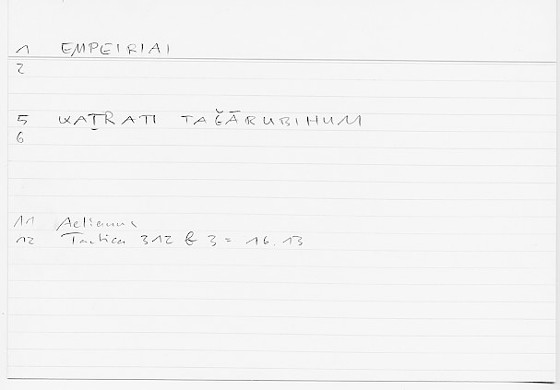 1 EMPEIRIAI
2
5 KAṬRATI TAǦĀRUBIHUM
6
11 Aelianus
12 Tactica 312 b 3 = 16.13